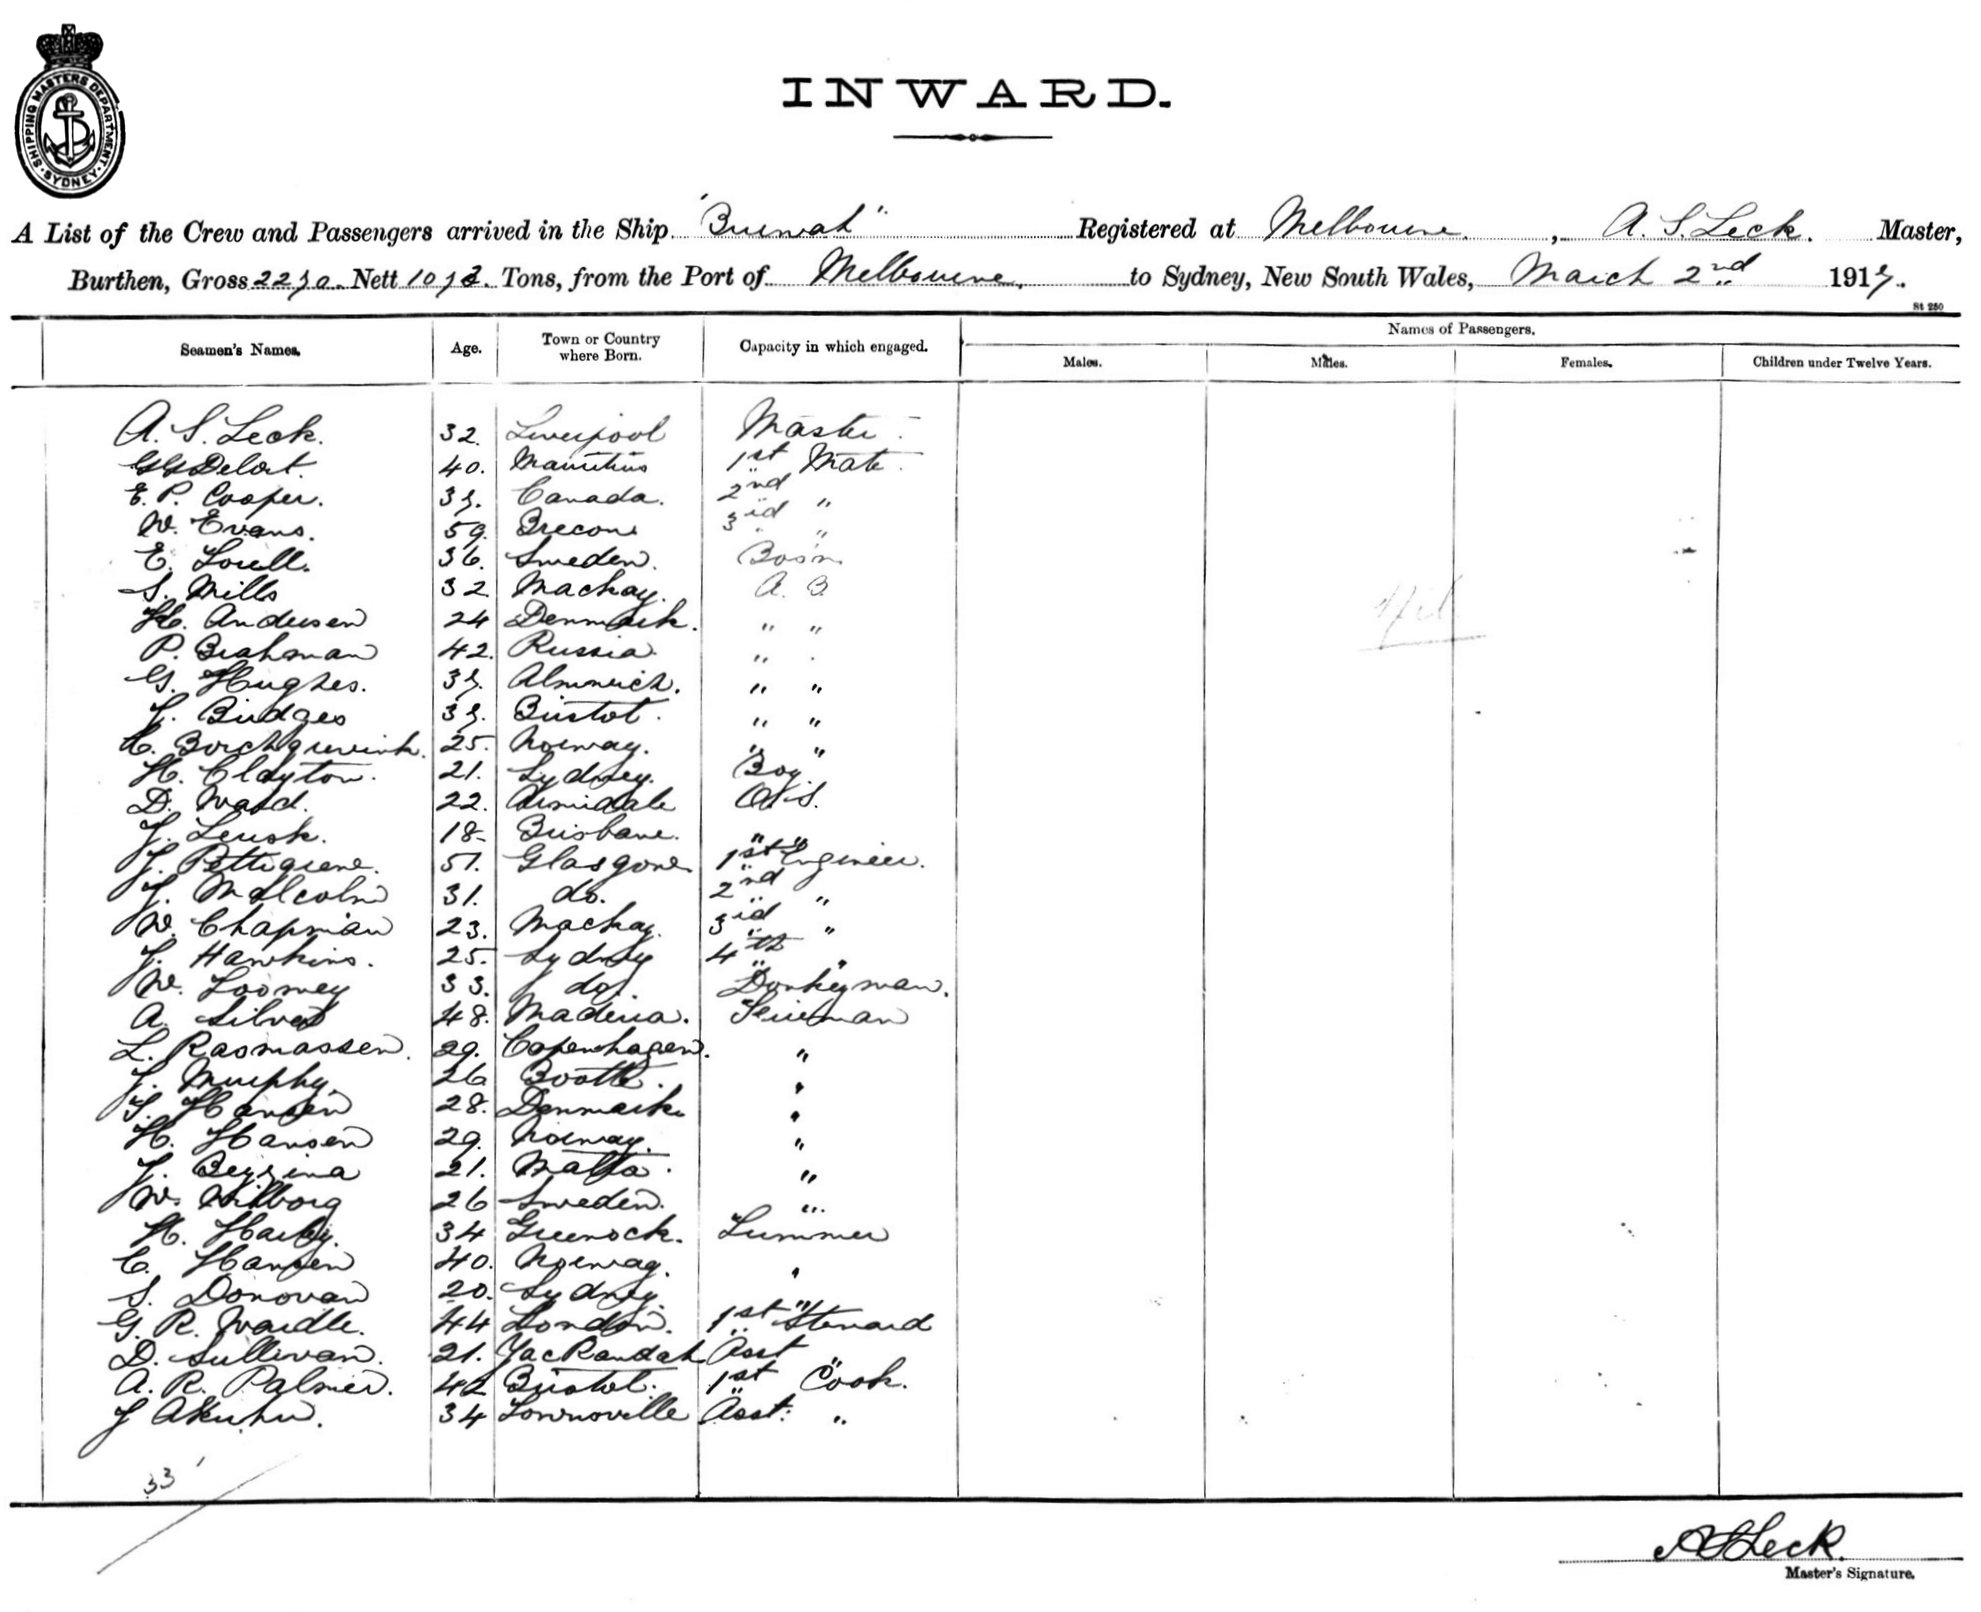 SHIPPING MASTERS DEPARTMENT
SYDNEY
INWARD.
A List of the Crew and Passengers arrived in the Ship "Burwah" Registered at Melbourne, A. S. Leck. Master,
Burthen, Gross 2270. Nett Tons, from the Port of Melbourne, to Sydney, New South Wales, March 2nd 191
St 250
Seamen's Names. Age. Town or Country where Born. Capacity in which engaged. Names of Passengers.
Males. Males. Females. Children under Twelve Years.
A. S. Leck. 32. Liverpool Master.
40. Mauritius 1st Mate.
E. P. Cooper. 37. Canada. 2nd "
W. Evans. 59. Brecon 3rd "
E. 36. Sweden. Bosn.
S. Mills 32 Mackay. A. B.
H. Andersen 24 Denmark. " "
P. Brahman 42. Russia. "
G. Hughes. 37. " "
J. Bridges 37. Bristol. " "
C. Borchgrevink. 25. Norway. " "
H. Clayton. 21. Sydney. Boy.
D. Ward. 22. Armidale O.S.
J. Leusk. 18. Brisbane. " "
J. Pettigrew. 51. Glasgow 1st Engineer.
J. Malcolm 31. do. 2nd "
W. Chapman 23. Mackay. 3rd "
J. Hawkins. 25. Sydney 4th "
W. Loomey 33. do. Donkeyman.
A. Silva 48. Maderia. Fireman
L. Rasmassen. 29. Copenhagen. "
J. Murphy. 26 Bootle. "
S. Hansen 28. Denmark "
H. Hansen 29. Norway. "
J. 21. Malta. "
W. Wilborg 26 Sweden. "
H. Harley. 34 Greenock. Trimmer
C. Hansen 40. Norway. "
S. Donovan 20. Sydney. "
G. R. Wardle. 44 London. 1st Steward
D. Sullivan. 21. Yackandah Asst "
A. R. Palmer. 42 Bristol. 1st Cook.
J 34 Townsville Asst. "
Nil
33
A S Leck.
Master's Signature.